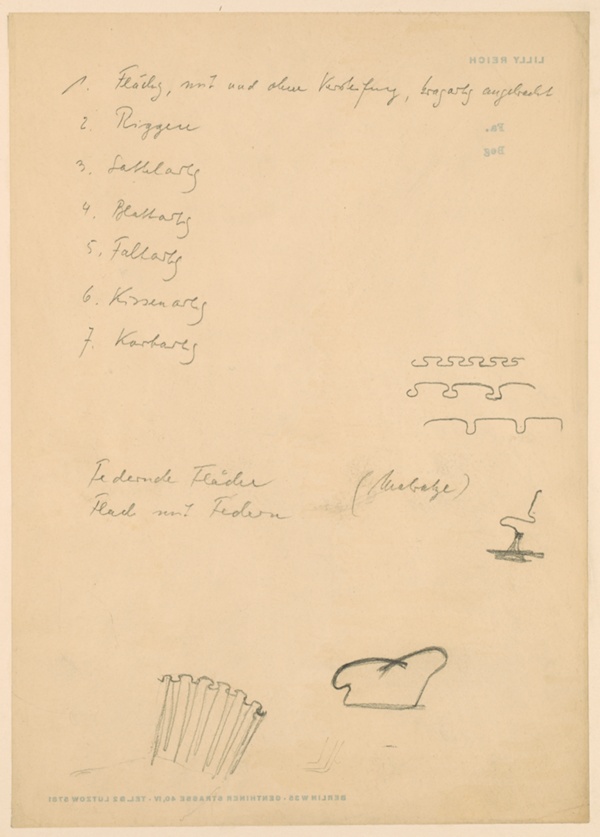 LILLY REICH
1. Flächig, mit und ohne Versteifung, trogartig angebracht
Fa.
Beg
2. Rippen
3. Sattelartig
4. Blattartig
5. Faltartig
6. Kissenartig
7. Korbartig
Federnde Fläche (Matratze)
Flach mit Federn
BERLIN W 35 · GENTHINER STRASSE 40, IV · TEL. B 2 LÜTZOW 5781